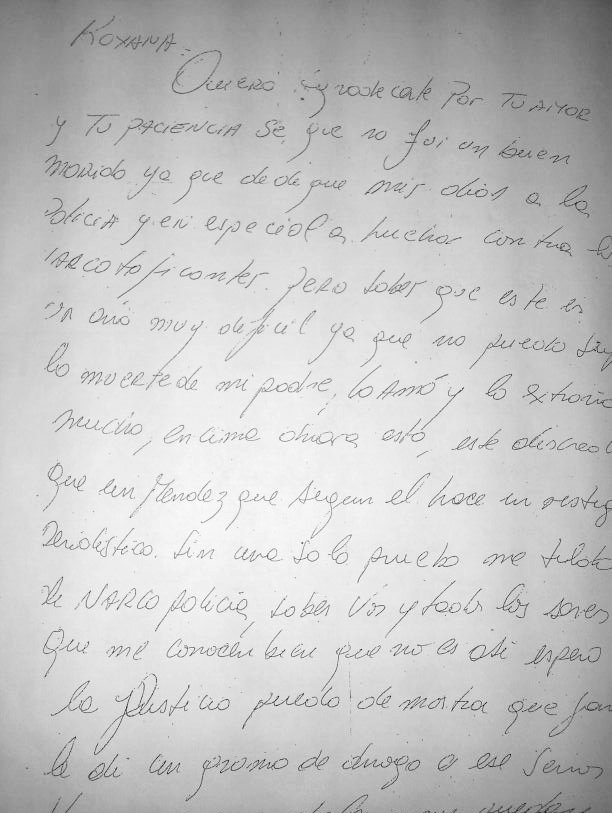 ROXANA.
Quiero agradecerte Por Tu AMOR
y Tu PACIENCIA Se que no fui un buen
marido ya que dedique mis dias a la
Policia y en especial a luchar contra lo
NARCOTRAficantes. pero sabes que este es
un año muy dificil ya que no puedo
la muerte de mi padre, lo AMO y lo extraño
mucho, encima ahora esto, este
que un Mendez que segun el hace
Periodistica. Sin una sola prueba me
de NARCO policia, sabes Vos y todos los seres
Que me conocen bien que no es asi espero
la Justicia pueda demostra que
le di un gramo de droga a ese